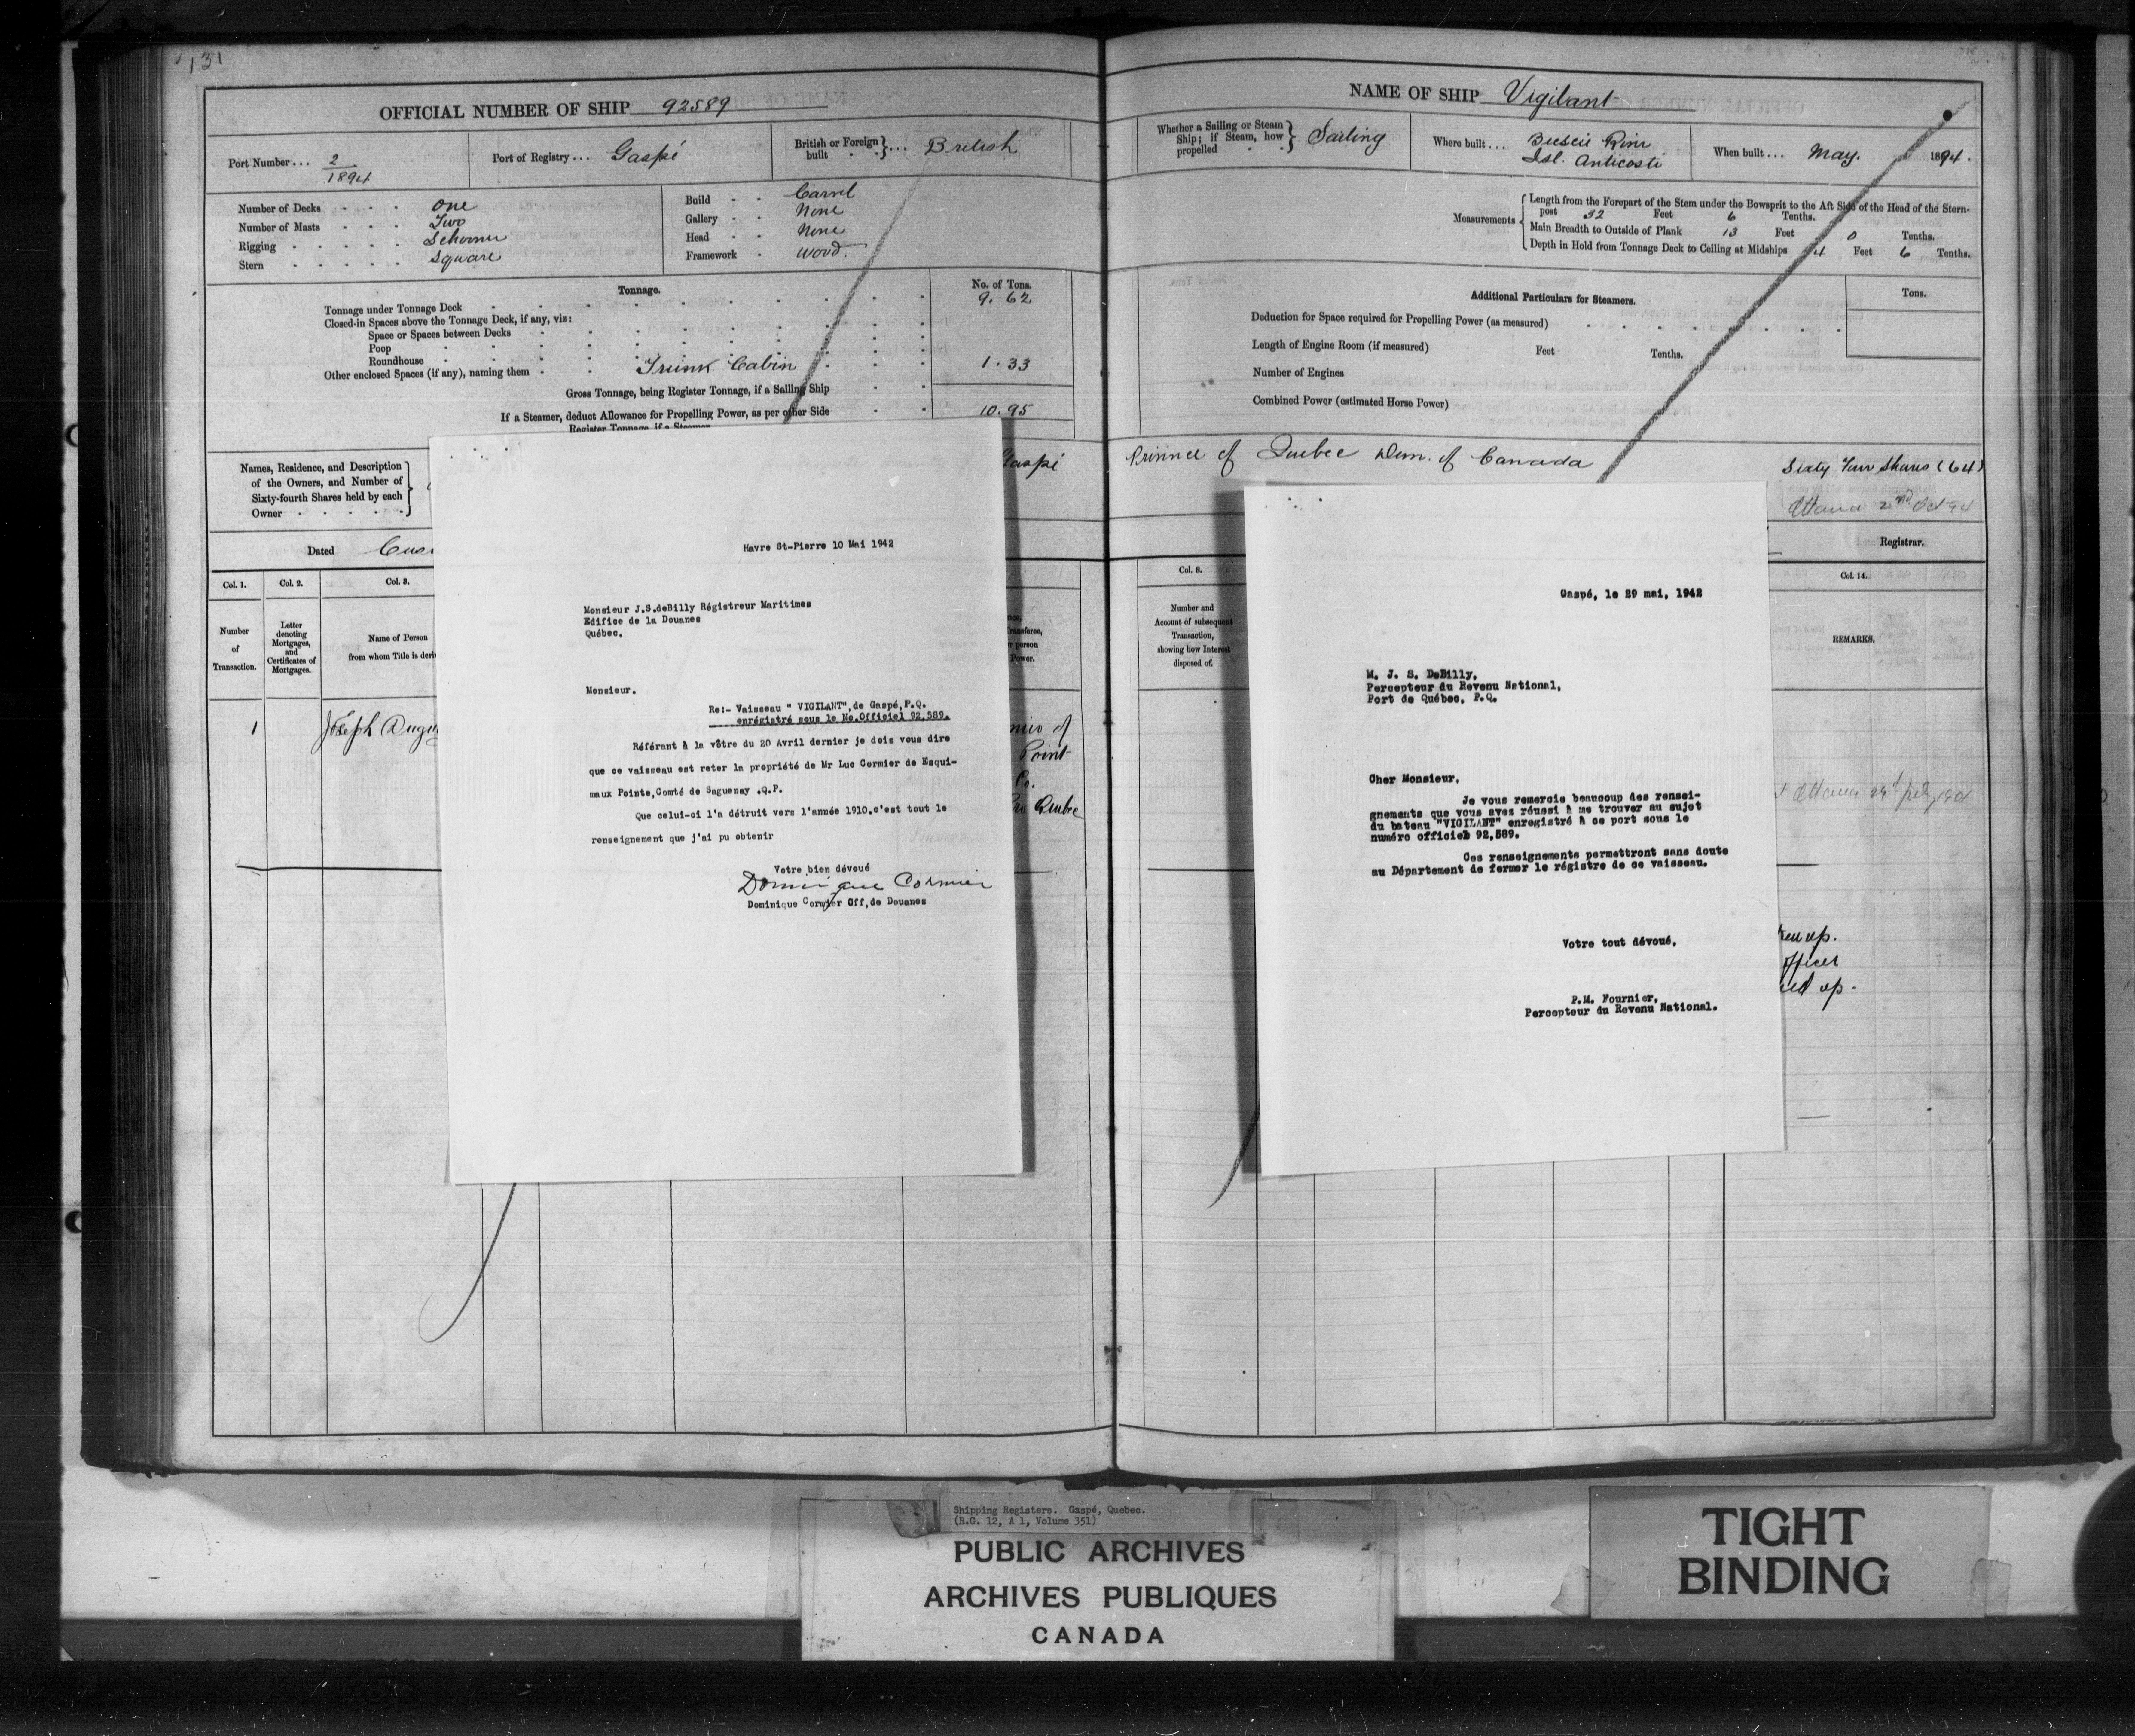 131
OFFICIAL NUMBER OF SHIP 92589
Port Number... 2/1894
Port of Registry... Gaspé
British or Foreign built } ... British
Number of Decks One
Number of Masts Two
Rigging Schooner
Stern Square
Build Carvel
Gallery None
Head None
Framework Wood.
Tonnage.
No. of Tons.
Tonnage under Tonnage Deck 9.62
Closed-in Spaces above the Tonnage Deck, if any, viz:
Space or Spaces between Decks
Poop
Roundhouse
Other enclosed Spaces (if any), naming them Trunk Cabin 1.33
Gross Tonnage, being Register Tonnage, if a Sailing Ship
If a Steamer, deduct Allowance for Propelling Power, as per other Side 10.95
Register Tonnage, if a Steamer
Names, Residence, and Description
of the Owners, and Number of
Sixty-fourth Shares held by each
Owner
Gaspé
Dated
Col. 1.
Col. 2.
Col. 3.
Number
of
Transaction.
Letter
denoting
Mortgages,
and
Certificates of
Mortgages.
Name of Person
from whom Title is
1
Joseph
of
Point
Co.
Quebec
Havre St-Pierre 10 Mai 1942
Monsieur J.S.deBilly Régistreur Maritimes
Edifice de la Douanes
Québec.
Monsieur.
Re:- Vaisseau " VIGILANT",de Gaspé,P.Q.
enrégistré sous le No.Officiel 92,589.
Référant à la vôtre du 20 Avril dernier je dois vous dire
que ce vaisseau est reter la propriété de Mr Luc Cormier de Esqui-
maux Pointe,Comté de Saguenay .Q.P.
Que celui-ci l'a détruit vers l'année 1910.c'est tout le
renseignement que j'ai pu obtenir
Votre bien dévoué
Dominique Cormier
Dominique Cormier Off,de Douanes
NAME OF SHIP Vigilant
Whether a Sailing or Steam
Ship; if Steam, how
propelled } Sailing
Where built... River
Isl. Anticosti
When built... May. 1894.
Measurements { Length from the Forepart of the Stem under the Bowsprit to the Aft Side of the Head of the Stern-
post 32 Feet 6 Tenths.
Main Breadth to Outside of Plank 13 Feet 0 Tenths.
Depth in Hold from Tonnage Deck to Ceiling at Midships 4 Feet 6 Tenths.
Additional Particulars for Steamers.
Tons.
Deduction for Space required for Propelling Power (as measured)
Length of Engine Room (if measured) Feet Tenths.
Number of Engines
Combined Power (estimated Horse Power)
Province of Quebec Dom. of Canada
Sixty Four Shares (64)
Ottawa 2nd Oct 94
Registrar.
Col. 8.
Col. 14.
Number and
Account of subsequent
Transaction,
showing how Interest
disposed of.
REMARKS.
Ottawa
up.
officer
up.
Gaspé, le 29 mai, 1942
M. J. S. DeBilly,
Percepteur du Revenu National,
Port de Québec, P.Q.
Cher Monsieur,
Je vous remercie beaucoup des rensei-
gnements que vous avez réussi à me trouver au sujet
du bateau "VIGILANT" enregistré à ce port sous le
numéro officiel 92,589.
Ces renseignements permettront sans doute
au Département de fermer le régistre de ce vaisseau.
Votre tout dévoué,
P.M. Fournier,
Percepteur du Revenu National.
Shipping Registers. Gaspé, Quebec.
(R.G. 12, A 1, Volume 351)
PUBLIC ARCHIVES
ARCHIVES PUBLIQUES
CANADA
TIGHT
BINDING